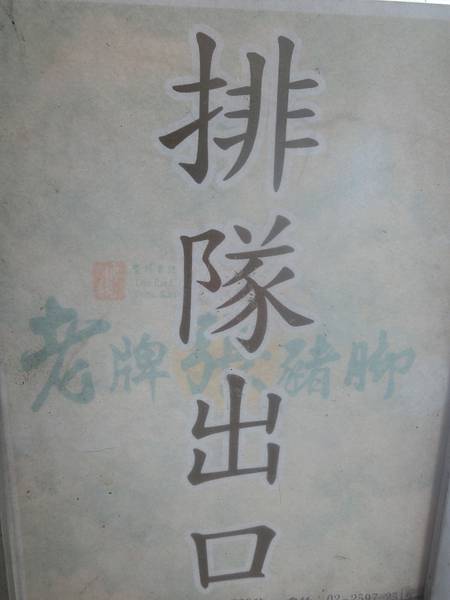 排隊出口
老牌張豬腳
02-2597-2519